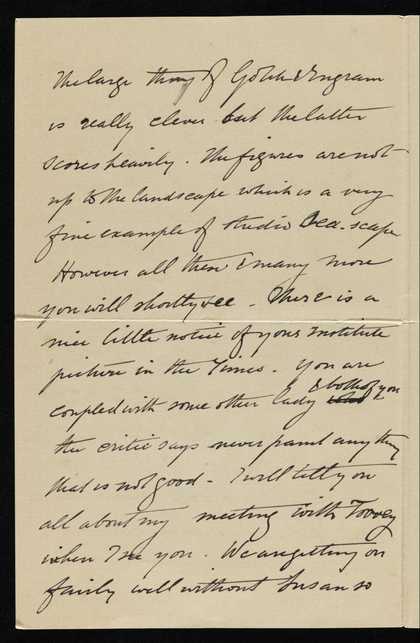 The large thing of Gotch & Ingram
is really clever but the latter
scores heavily. The figures are not
up to the landscape which is a very
fine example of studio sea-scape
However all these & many more
you will shortly see. There is a
nice little notice of your Institute
picture in the Times. You are
coupled with some other lady & both of you
the critic says never paint anything
that is not good - I will tell you
all about my meeting with Tovey
when I see you. We are getting on
fairly well without Susan so